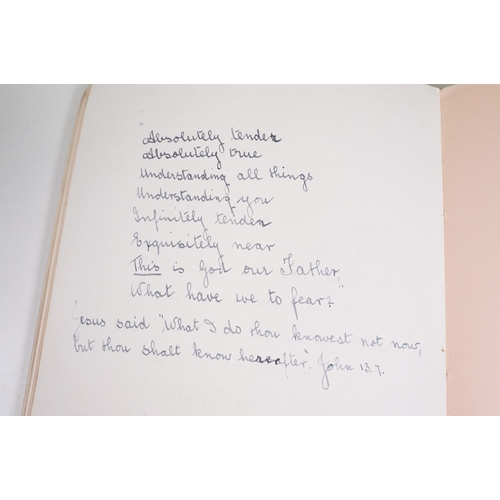 "Absolutely tender
Absolutely true
Understanding all things
Understanding you
Infinitely tender
Exquisitely near
This is God our Father,
What have we to fear?"
Jesus said "What I do thou knowest not now,
but thou shalt know hereafter". John 13.7.